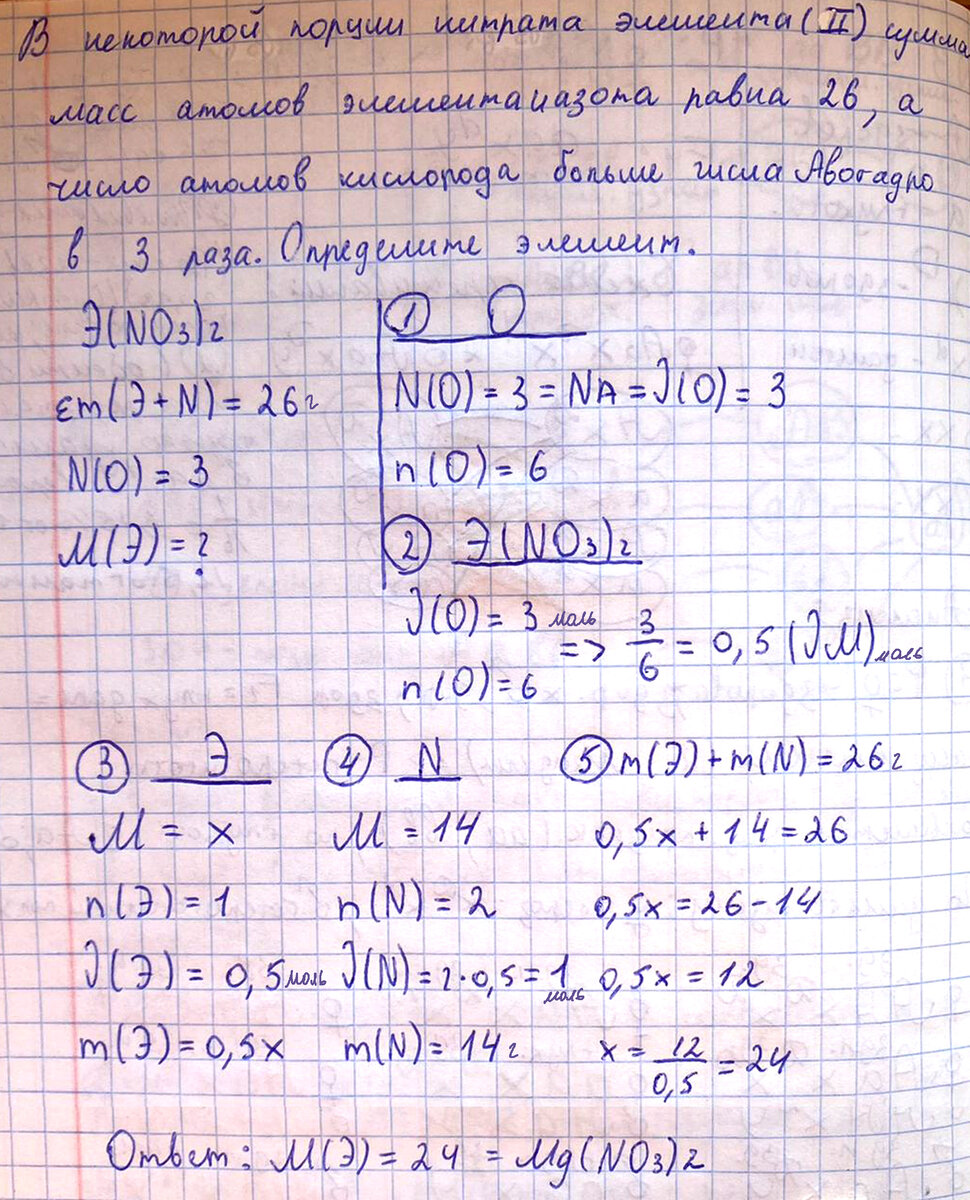 В некоторой порции нитрата элемента (II) сумма
масс атомов элемента и азота равна 26, а
число атомов кислорода больше числа Авогадро
в 3 раза. Определите элемент.
Э(NO3)2
εm(Э+N) = 26г
N(O) = 3
M(Э) = ?
① O
N(O) = 3 = NA = J(O) = 3
n(O) = 6
② Э(NO3)2
J(O) = 3 моль
n(O) = 6
=> 3/6 = 0,5 (JM) моль
③ Э
M = x
n(Э) = 1
J(Э) = 0,5 моль
m(Э) = 0,5x
④ N
M = 14
n(N) = 2
J(N) = 2·0,5 = 1 моль
m(N) = 14г
⑤ m(Э) + m(N) = 26г
0,5x + 14 = 26
0,5x = 26 - 14
0,5x = 12
x = 12/0,5 = 24
Ответ: M(Э) = 24 = Mg(NO3)2